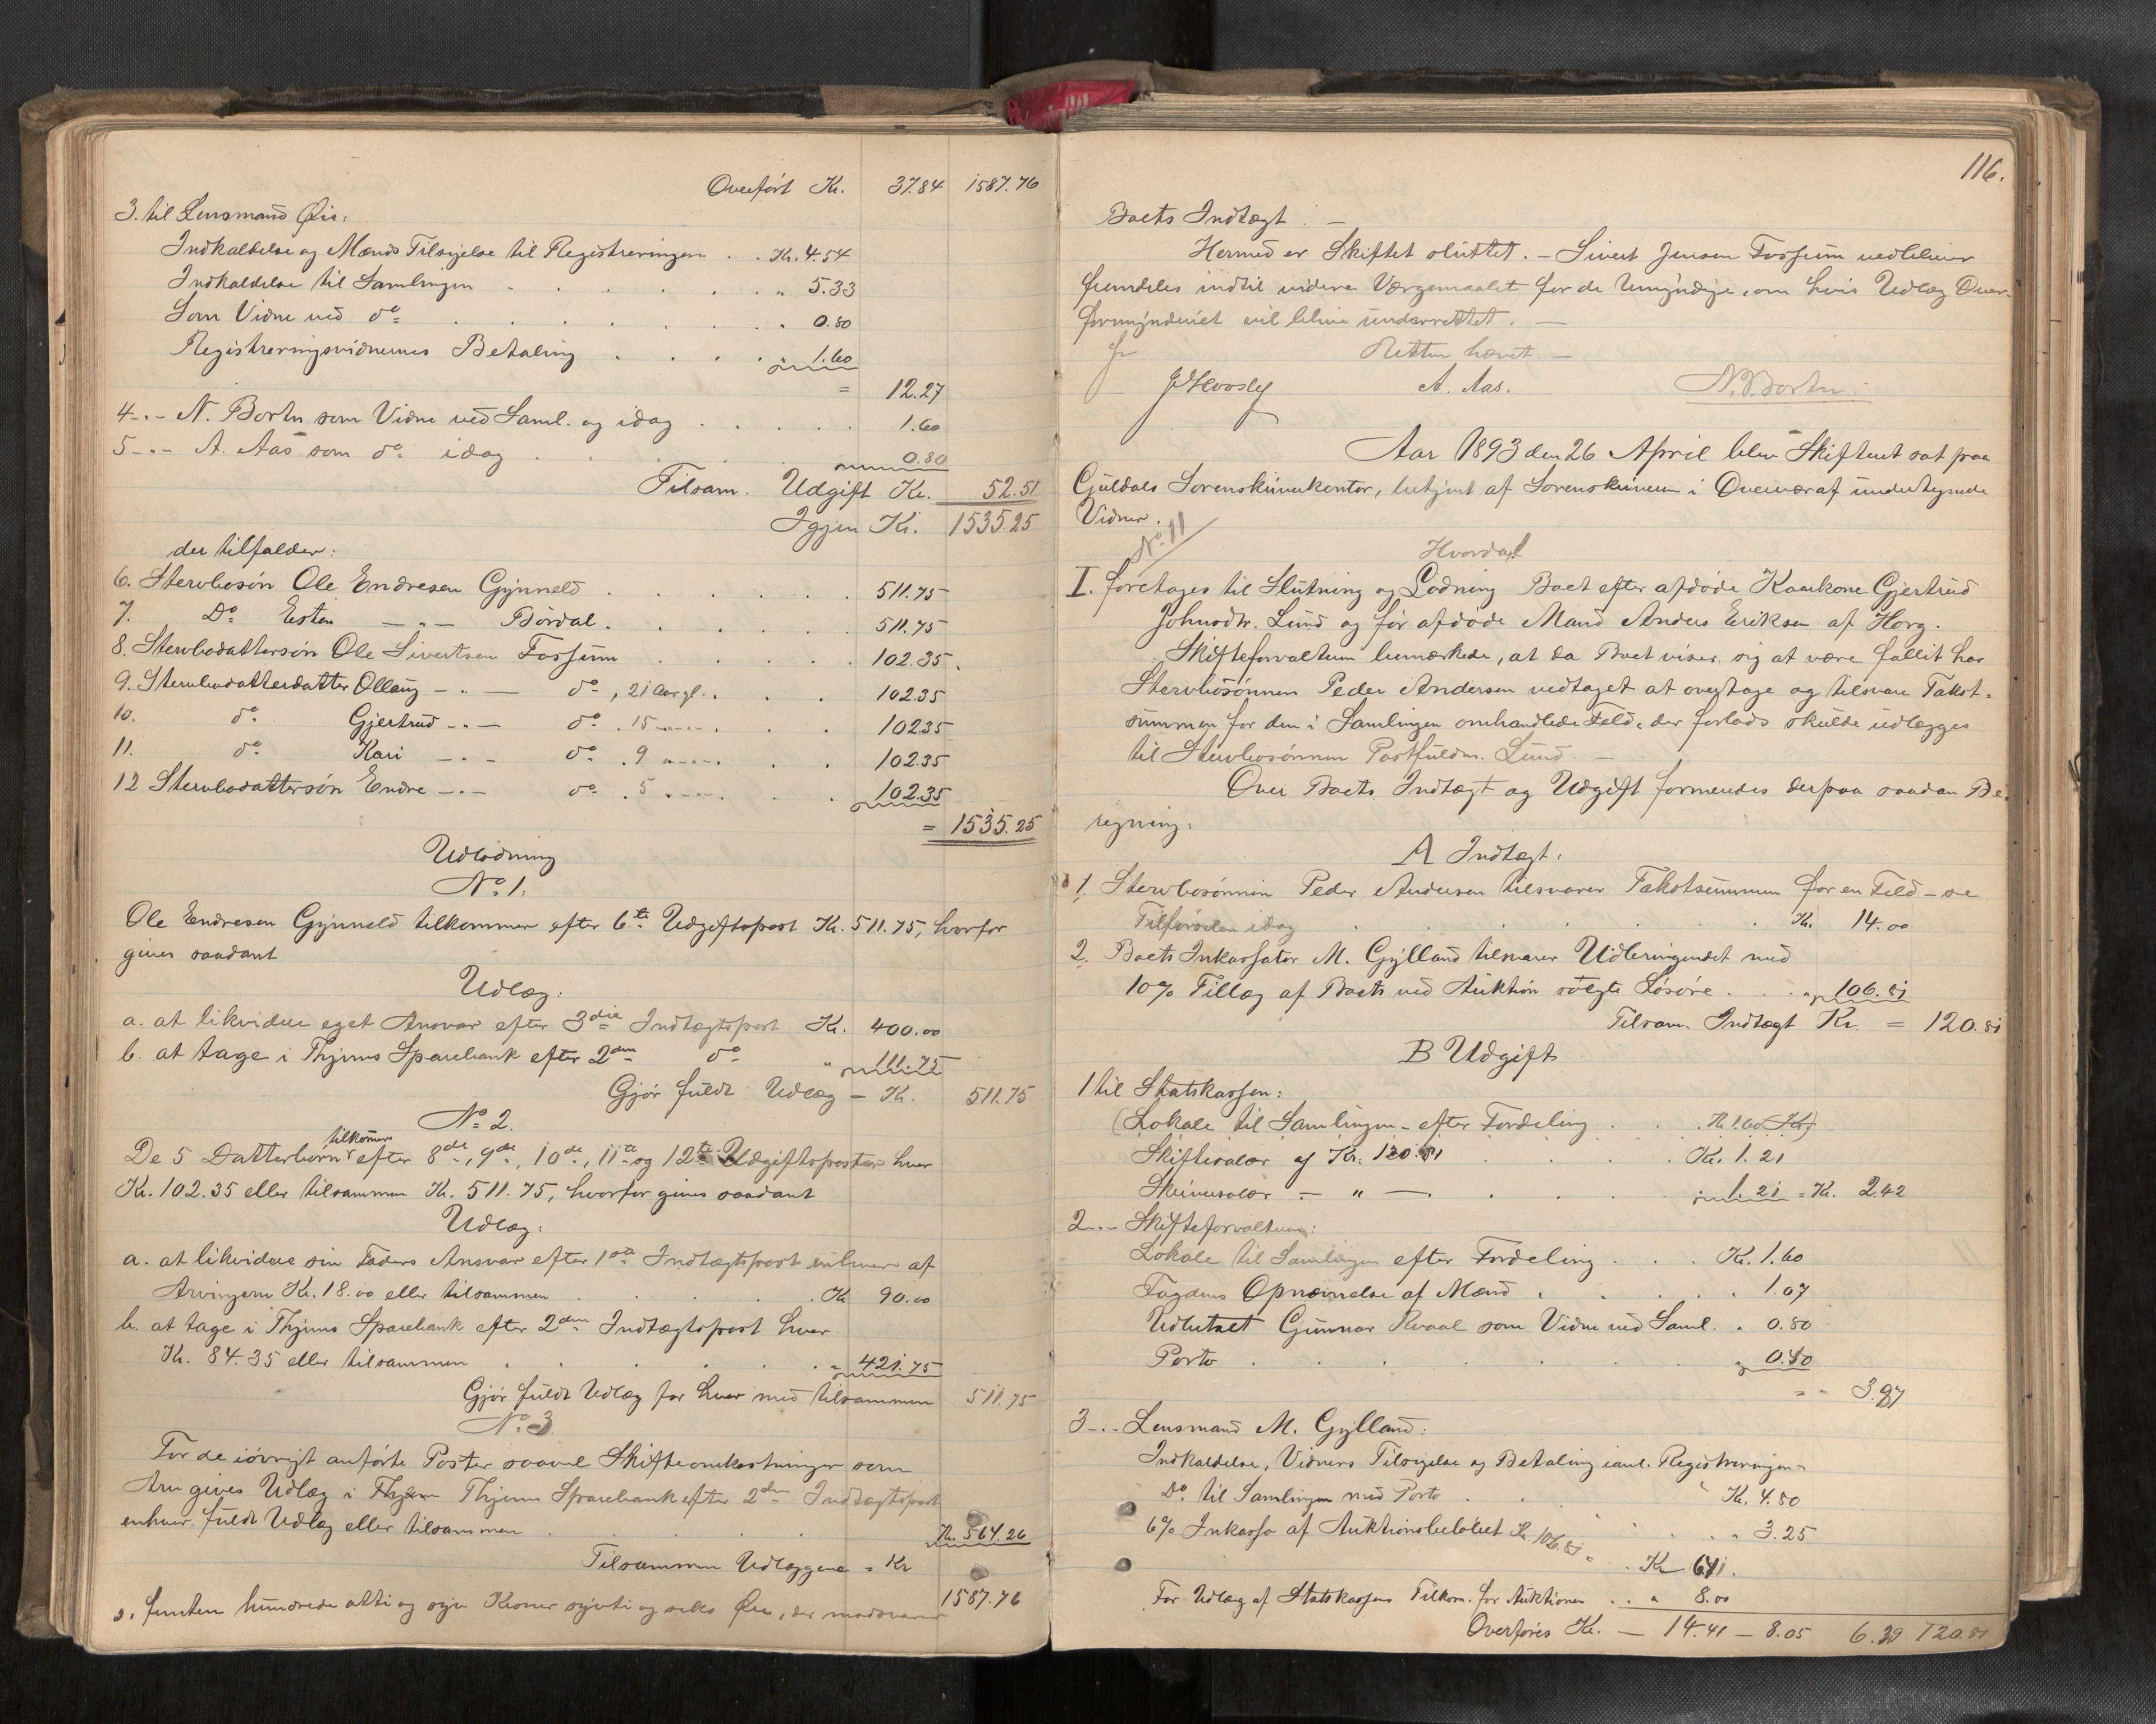 Overført Kr. 37.84 1587.76
3. til Lensmand Øie:
Indkaldelse og Mænds Tilsigelse til Registreringen . . Kr. 4.54
Indkaldelse til Samlingen . . . . . . . " 5.33
Som Vidne ved do . . . . . . . " 0.80
Registreringsvidnernes Betaling . . . . " 1.60
= 12.27
4 - " - N. Bortn som Vidne ved Saml. og idag . . . . . 1.60
5 - " - A. Aas som do idag . . . . . 0.80
Tilsam. Udgift Kr. 52.51
Igjen Kr. 1535.25
der tilfalder:
6. Stervbosøn Ole Endresen Gynneld . . . . . . 511.75
7. Do Esten - " - Bördal . . . . . . 511.75
8. Stervbodattersøn Ole Sivertsen Fossum . . . . 102.35.
9. Stervbodatterdatter Ollaug - " - do, 21 Aar gl. . . . 102.35
10. do Gjertrud - " - do . 15 - " - " - . . . 102.35
11. do Kari - " - do . 9 - " - " - . . . 102.35
12 Stervbodattersøn Endre - " - do . 5 - " - " - . . . 102.35
= 1535.25
Udlodning
No 1.
Ole Endresen Gynneld tilkommer efter 6te Udgiftspost Kr. 511.75, hvorfor
gives saadant
Udlæg:
a. at likvidere eget Ansvar efter 3die Indtægtspost Kr. 400.00
b. at tage i Thjems Sparebank efter 2den do " 111.75
Gjør fuldt Udlæg - Kr. 511.75
No 2.
De 5 Datterbørn tilkommer efter 8de, 9de, 10de, 11te og 12te Udgiftsposter hver
Kr. 102.35 eller tilsammen Kr. 511.75, hvorfor gives saadant
Udlæg:
a. at likvidere sin Faders Ansvar efter 1ste Indtægtspost enhver af
Arvingerne Kr. 18.00 eller tilsammen . . . . . Kr 90.00
b. at tage i Thjems Sparebank efter 2den Indtægtspost hver
Kr. 84.35 eller tilsammen . . . . . . " 421.75
Gjør fuldt Udlæg for hver med tilsammen 511.75
No 3
For de iøvrigt anførte Poster saavel Skifteomkostninger som
Arv gives Udlæg i Thjems Sparebank efter 2den Indtægtspost
enhver fuldt Udlæg eller tilsammen . . . . . Kr. 564.26
Tilsammen Udlæggene = Kr 1587.76
femten hundrede otti og syv Kroner sytti og seks Øre, der modsvarer
116.
Boets Indtægt. -
Hermed er Skiftet sluttet. - Sivert Jensen Fossum vedbliver
fremdeles indtil videre Værgemaalet for de Umyndige, om hvis Udlæg Over-
formynderiet vil blive underrettet. -
Retten hævet. -
A. Aas. N. Bortn.
Aar 1893 den 26 April blev Skifteret sat paa
Guldals Sorenskriverkontor, betjent af Sorenskriveren i Overvær af undertegnede
Vidner.
No. 11
Hvorda
I. foretages til Slutning og Lodning Boet efter afdøde Kaarkone Gjertrud
Johnsdtr. Lund og før afdøde Mand Anders Eriksen af Horg.
Skifteforvalteren bemærkede, at da Boet viser sig at være fallit har
Stervbosønnen Peder Andersen vedtaget at overtage og tilsvare Takst-
summen for den i Samlingen omhandlede Feld, der forlods skulde udlægges
til Stervbosønnen Postfuldm. Lund. -
Over Boets Indtægt og Udgift formeredes derpaa saadan Be-
regning:
A Indtægt:
1. Stervbosønnen Peder Andersen tilsvarer Takstsummen for en Feld - se
Tilførselen idag . . . . . . Kr. 14.00
2. Boets Inkassator M. Gylland tilsvarer Udbringendet med
10% Tillæg af Boets ved Auktion solgte Løsøre . . . " 106.81
Tilsam. Indtægt Kr. = 120.81
B Udgift
1 til Statskassen:
(Lokale til Samlingen - efter Fordeling . . . Kr. 1.60 Kr)
Skiftesalær af Kr. 120.81 . . . . Kr. 1.21
Skriversalær - " - . . . . " 1.21 = Kr. 2.42
2 - " - Skifteforvalteren:
Lokale til Samlingen efter Fordeling . . . Kr. 1.60
Fogdens Opnævnelse af Mænd . . . . . 1.07
Udbetalt Gunnar Kvaal som Vidne ved Saml. " 0.80
Porto . . . . . . . " 0.40
= " 3.87
3 - " - Lensmand M. Gylland:
Indkaldelse, Vidners Tilsigelse og Betaling ianl. Registreringen =
Do. til Samlingen med Porto . . . Kr. 4.80
6% Inkasso af Auktionsbeløbet Kr. 106.81 = . . . " 3.25
Kr 641.
For Udlæg af Statskassens Tilkom. for Auktionen . . " 8.00
Overføres Kr. - 14.41 - 8.05 6.29 120.81